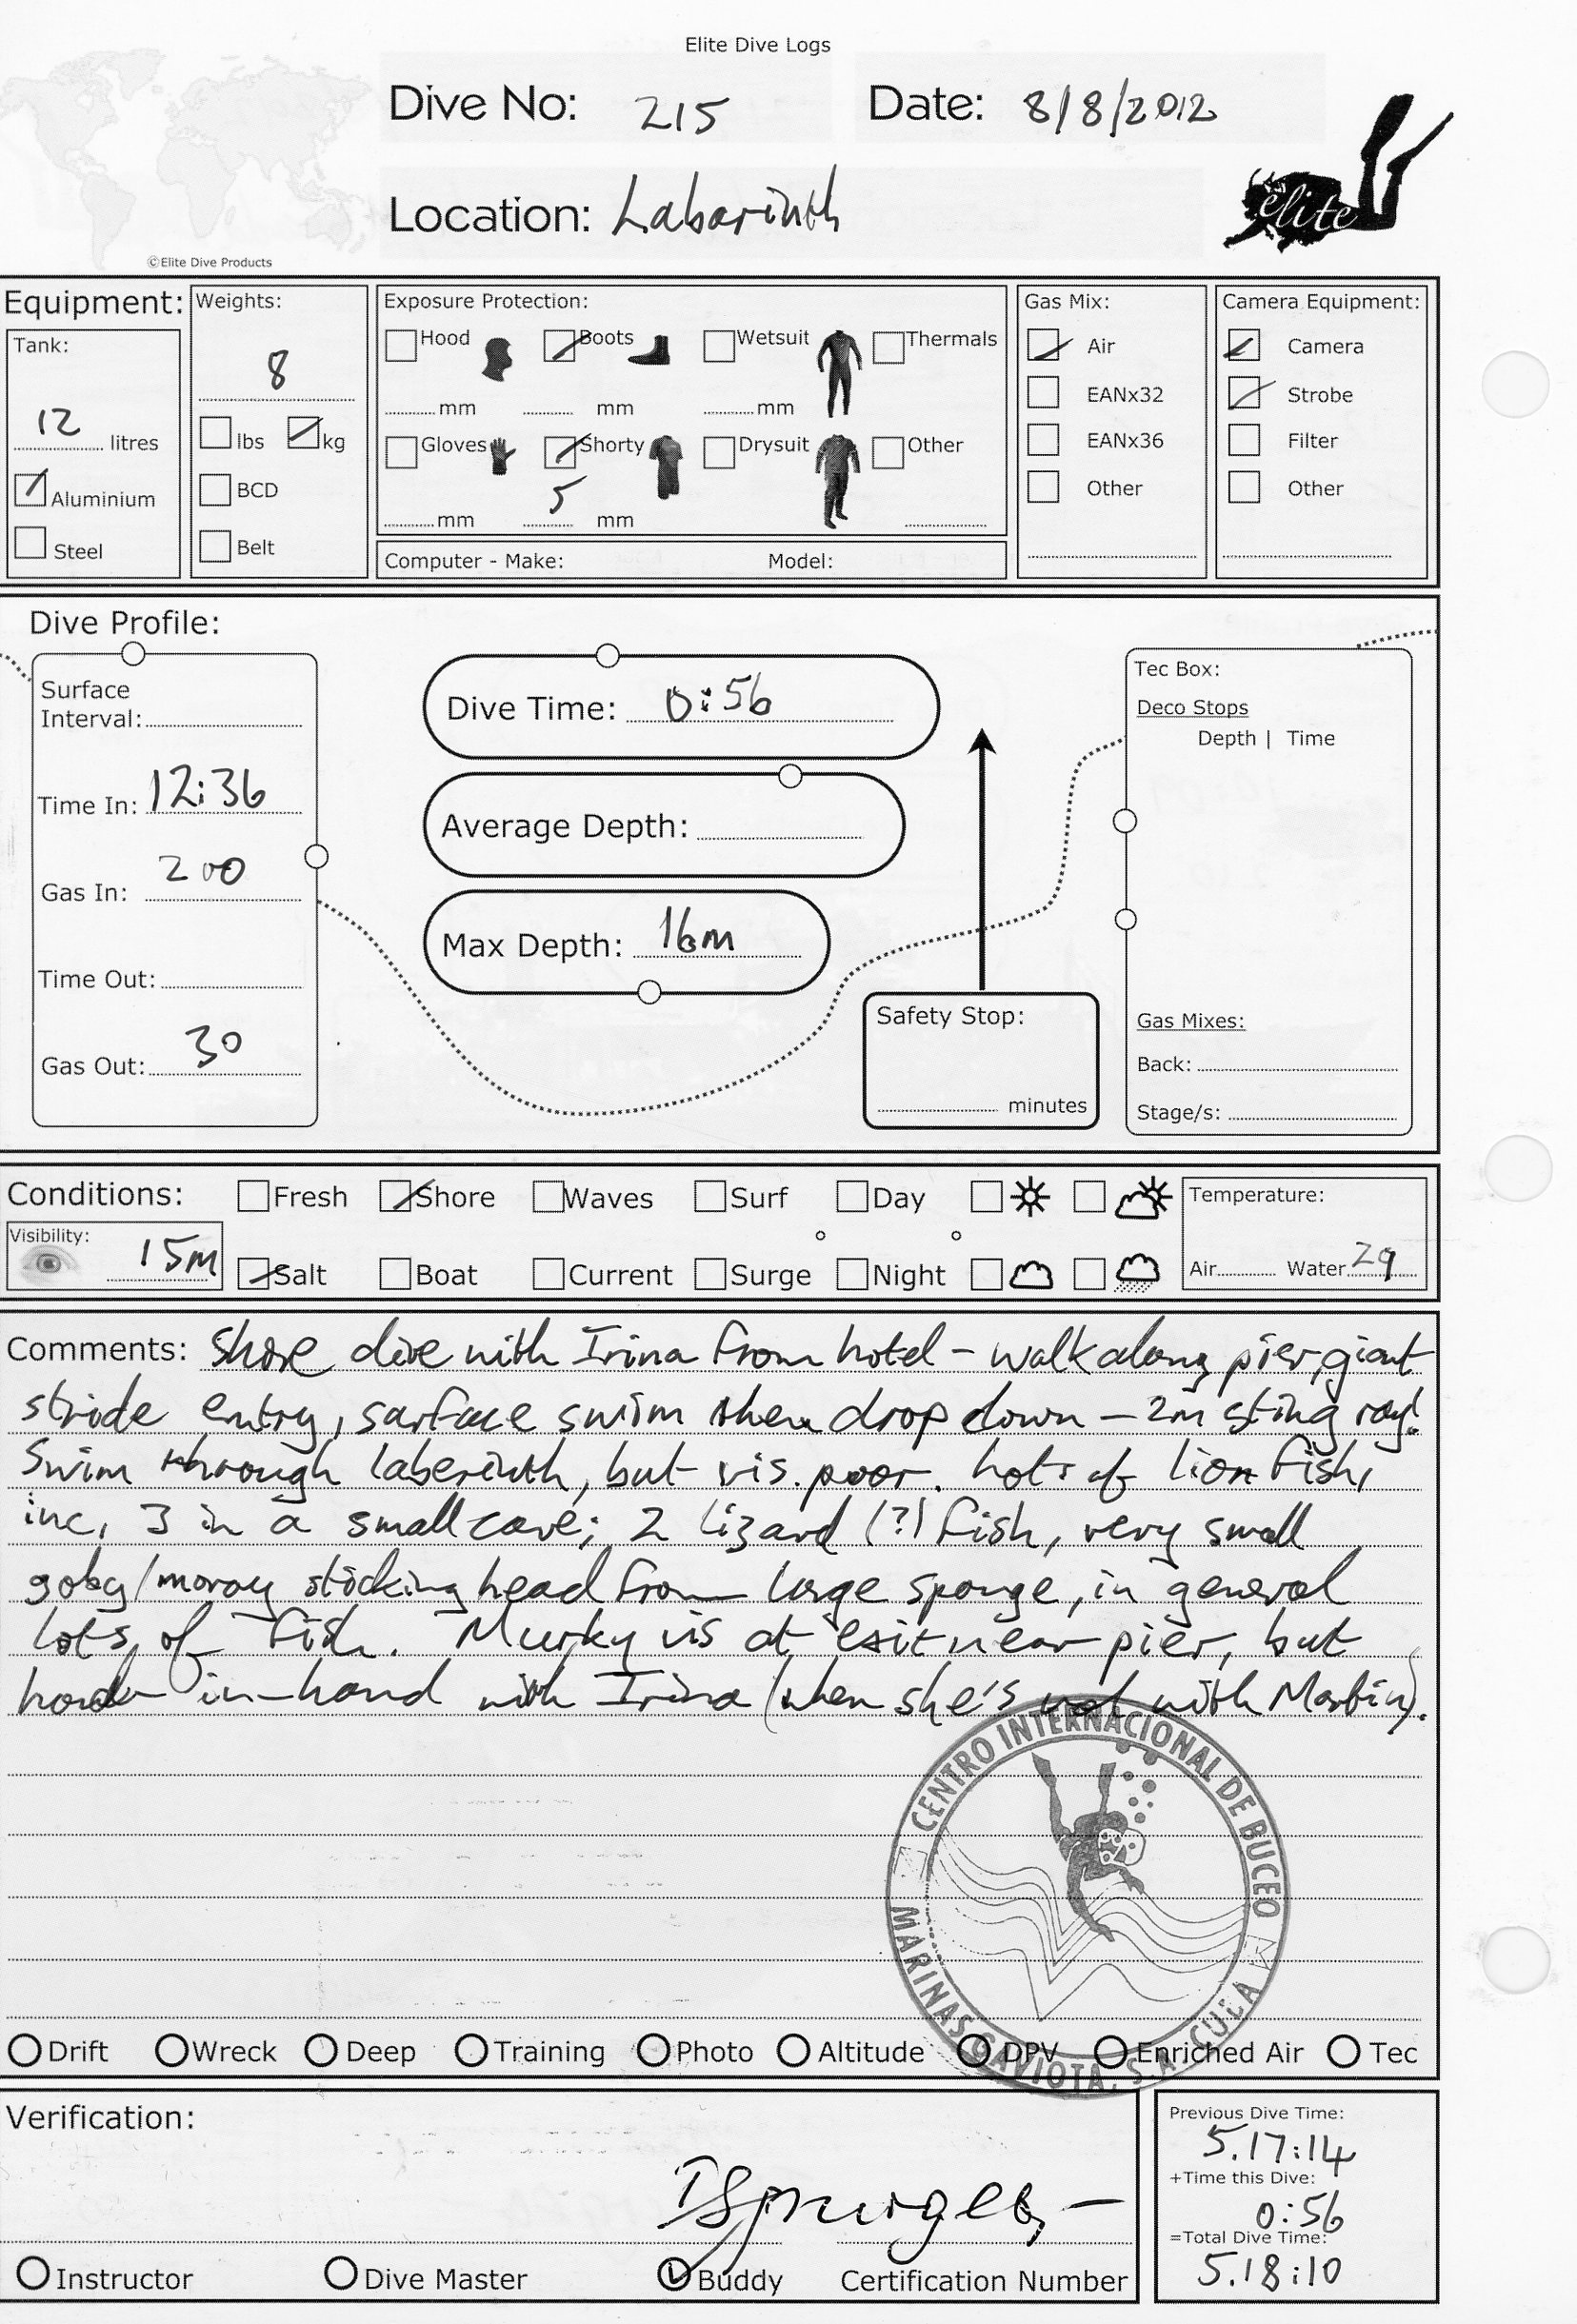 Elite Dive Logs
Dive No: 215
Date: 8/8/2012
Location: Labarinth
elite
©Elite Dive Products
Equipment:
Tank:
12 litres
Aluminium
Steel
Weights:
8
lbs kg
BCD
Belt
Exposure Protection:
Hood Boots Wetsuit Thermals
mm mm mm
Gloves Shorty Drysuit Other
5
mm mm
Computer - Make: Model:
Gas Mix:
Air
EANx32
EANx36
Other
Camera Equipment:
Camera
Strobe
Filter
Other
Dive Profile:
Surface
Interval:
Time In: 12:36
Gas In: 200
Time Out:
Gas Out: 30
Dive Time: 0:56
Average Depth:
Max Depth: 16m
Safety Stop:
minutes
Tec Box:
Deco Stops
Depth | Time
Gas Mixes:
Back:
Stage/s:
Conditions: Fresh Shore Waves Surf Day
Visibility: 15m
Salt Boat Current Surge Night
Temperature:
Air Water 29
Comments: Shore dive with Irina from hotel - walk along pier, giant
stride entry, surface swim then drop down - 2m sting ray!
Swim through laberinth, but vis. poor. Lots of lion fish,
inc. 3 in a small cave; 2 lizard (?) fish, very small
goby/moray sticking head from large sponge, in general
lots of fish. Murky vis at exit near pier, but
hand in-hand with Irina (when she's not with Martin).
CENTRO INTERNACIONAL DE BUCEO
MARINAS GAVIOTA, S.A. CUBA
Drift Wreck Deep Training Photo Altitude DPV Enriched Air Tec
Verification:
Instructor Dive Master Buddy Certification Number
Previous Dive Time:
5.17:14
+Time this Dive:
0:56
=Total Dive Time:
5.18:10